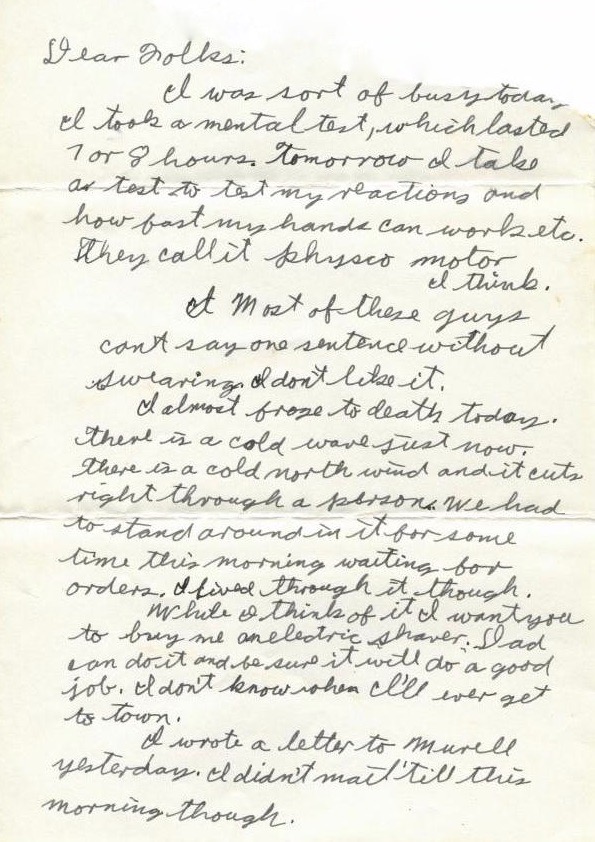 Dear Folks:
I was sort of busy today
I took a mental test, which lasted
7 or 8 hours. Tomorrow I take
a test to test my reactions and
how fast my hands can work etc.
They call it physco motor
I think.
I Most of these guys
can't say one sentence without
swearing. I don't like it.
I almost froze to death today.
there is a cold wave just now.
there is a cold north wind and it cuts
right through a person. We had
to stand around in it for some
time this morning waiting for
orders. I lived through it though.
While I think of it I want you
to buy me an electric shaver. Dad
can do it and be sure it will do a good
job. I don't know when I'll ever get
to town.
I wrote a letter to Murell
yesterday. I didn't mail 'till this
morning though.